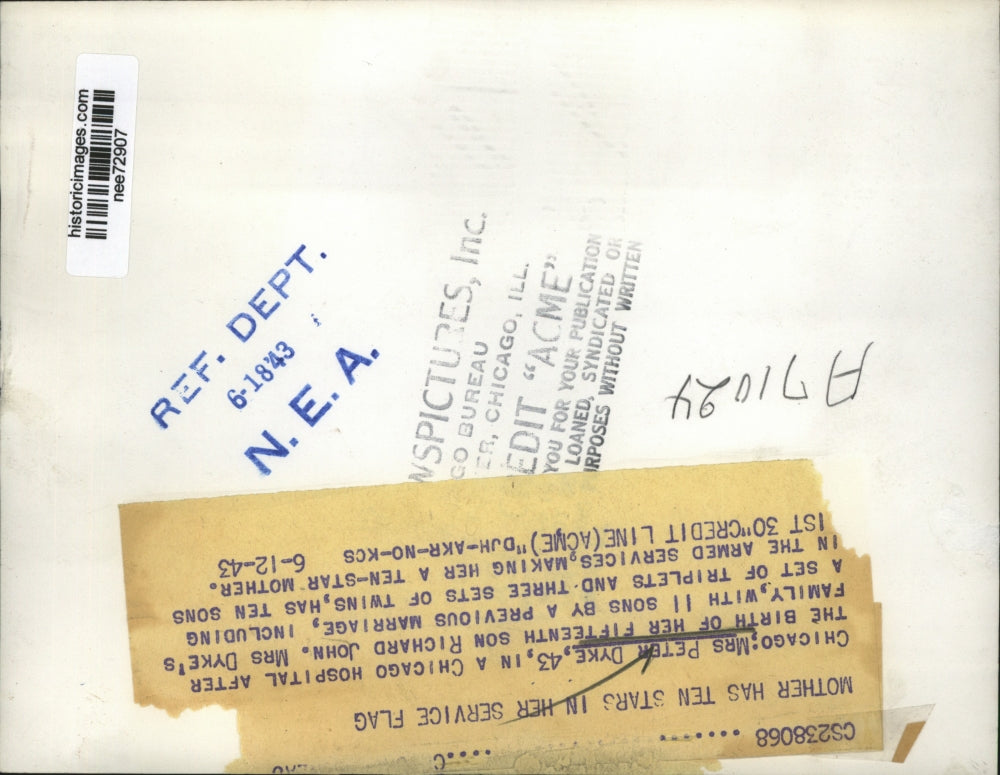 historicimages.com
nee72907
REF. DEPT.
6-18'43
N. E. A.
WSPICTURES, Inc.
GO BUREAU
ER, CHICAGO, ILL.
EDIT "ACME"
YOU FOR YOUR PUBLICATION
LOANED, SYNDICATED OR
URPOSES WITHOUT WRITTEN
A71024
CS238068 ........ ....C
MOTHER HAS TEN STARS IN HER SERVICE FLAG
CHICAGO: MRS PETER DYKE, 43, IN A CHICAGO HOSPITAL AFTER
THE BIRTH OF HER FIFTEENTH SON RICHARD JOHN. MRS DYKE'S
FAMILY, WITH 11 SONS BY A PREVIOUS MARRIAGE, INCLUDING
A SET OF TRIPLETS AND THREE SETS OF TWINS, HAS TEN SONS
IN THE ARMED SERVICES, MAKING HER A TEN-STAR MOTHER.
IST 30"CREDIT LINE(ACME)"DJH-AKR-NO-KCS 6-12-43